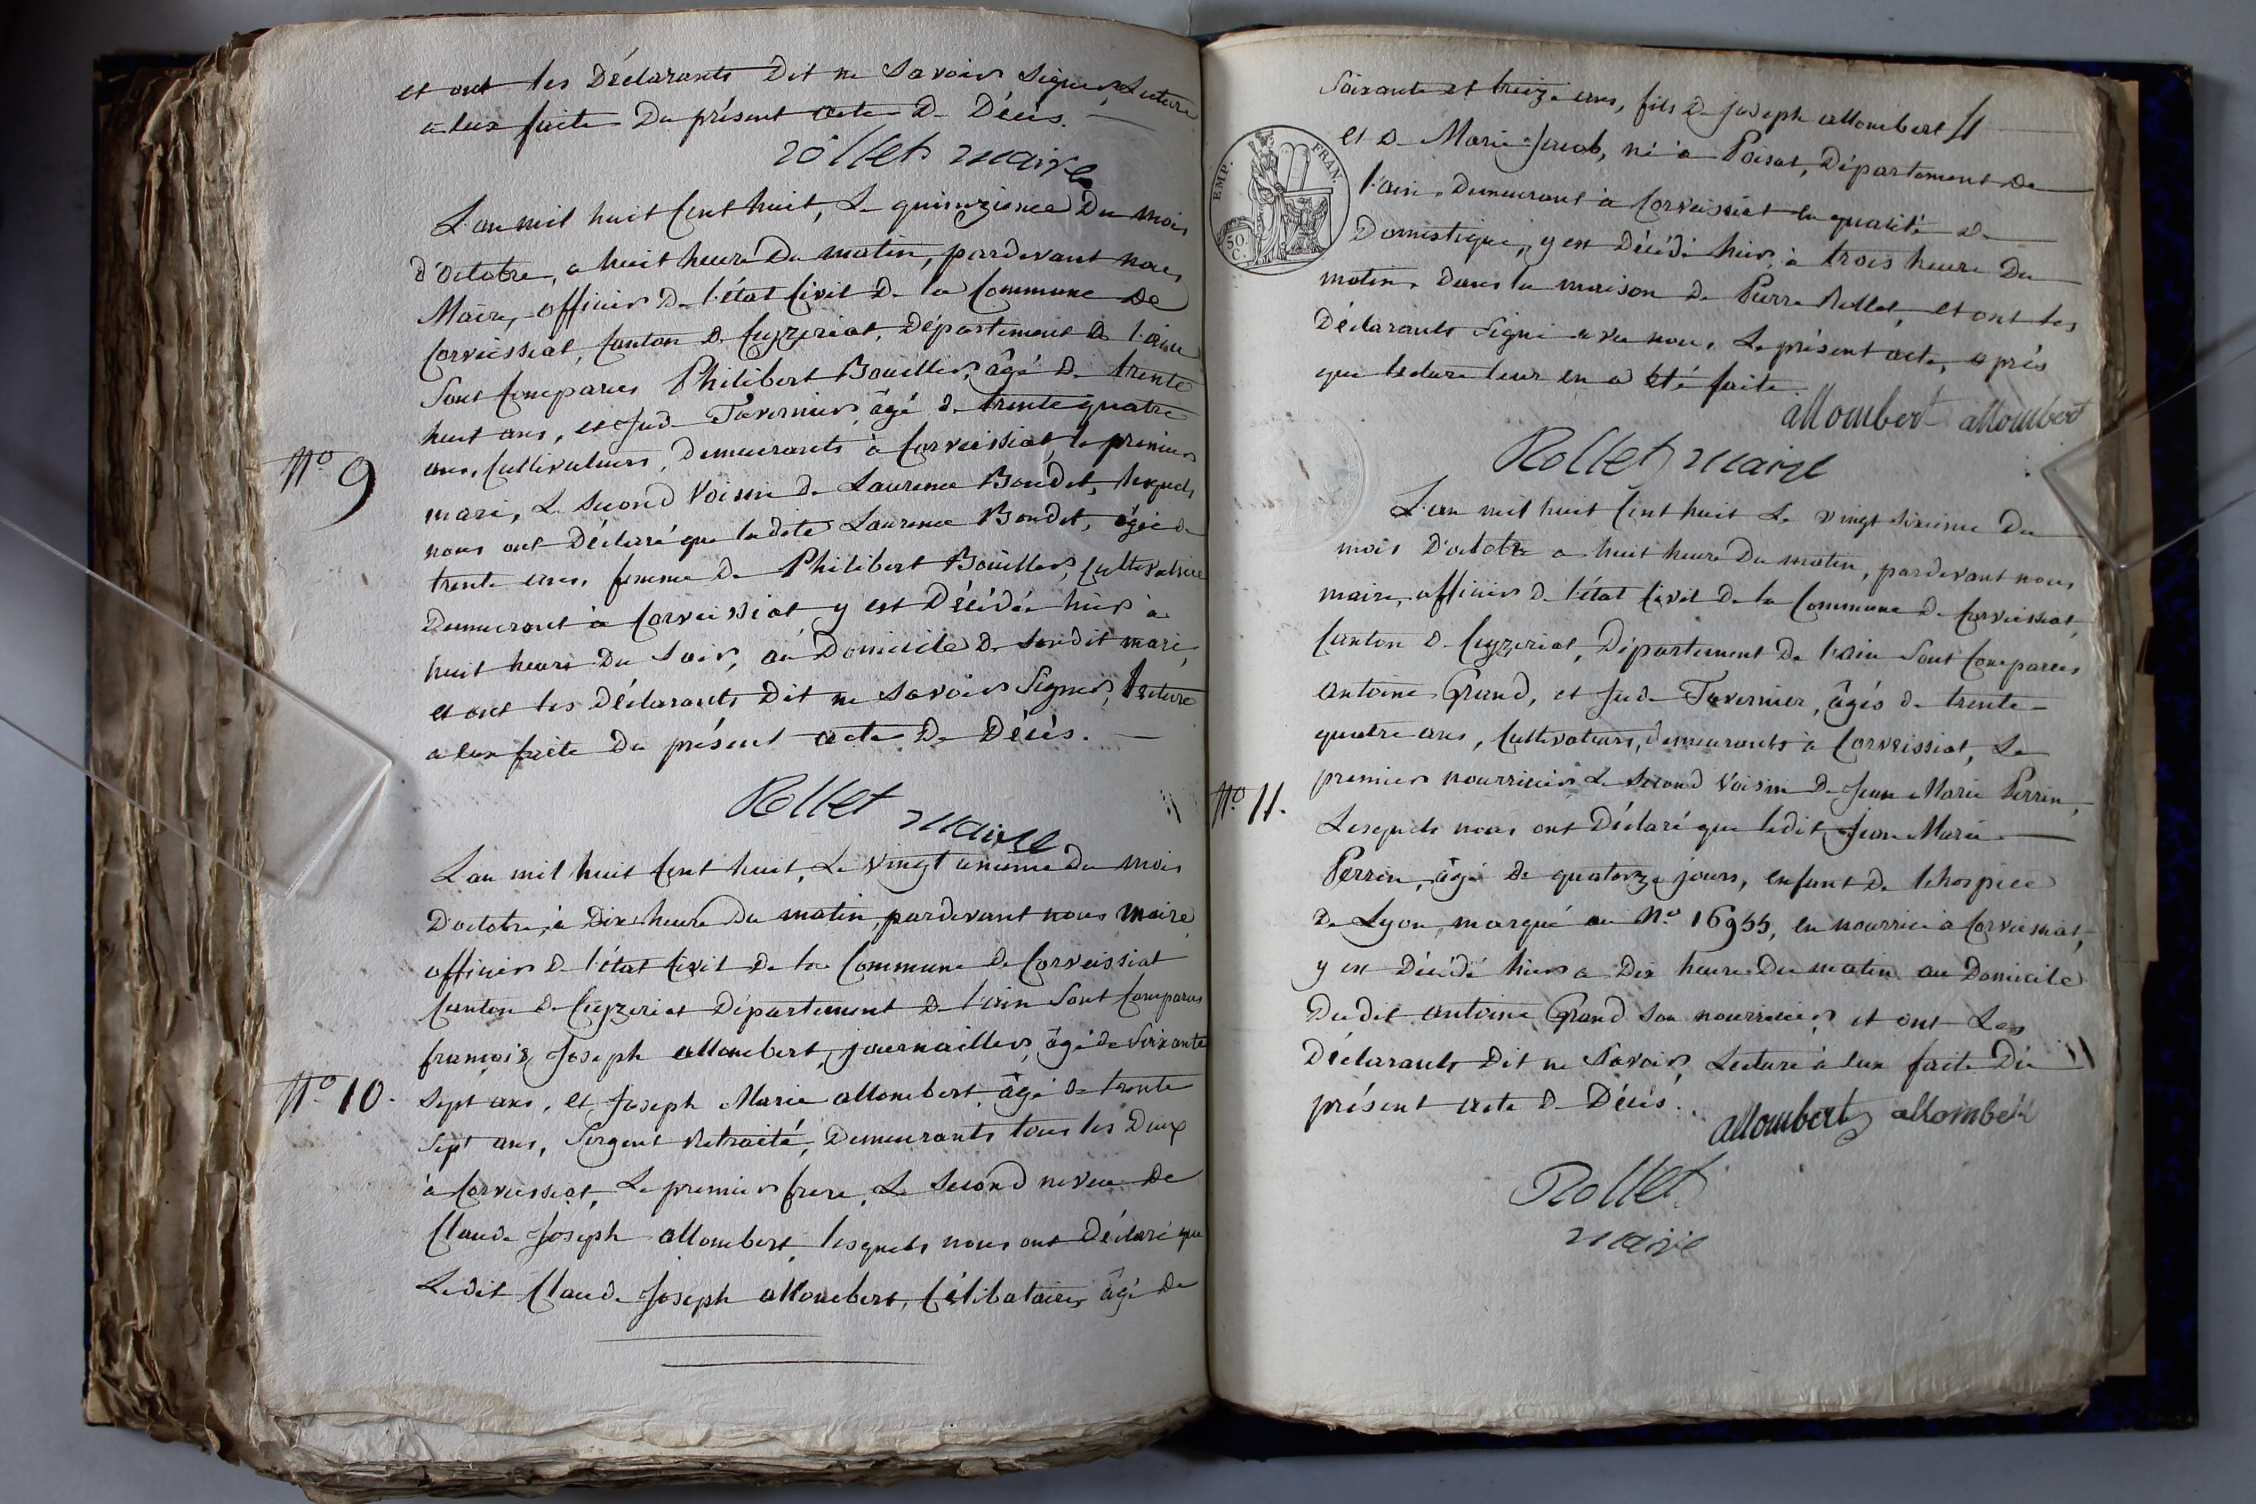 et ont les Déclarants Dit ne Savoir Signer, Lecture
a eux faite Du présent acte De Décès.
rollet maire
L'an mil huit Cent huit, Le quinzieme Du mois
d'octobre, a huit heure Du matin, pardevant nous
Maire, officier De l'état Civil De la Commune De
Corveissiat, Canton De Ceyzeriat, Département De l'ain
Sont Comparus Philibert Bouiller, âgé De trente
huit ans, et Jude Tavernier, âgé de trente quatre
ans, Cultivateurs, Demeurants à Corveissiat, le premier
mari, Le Second Voisin De Laurence Boudet, lesquels
nous ont Déclaré que ladite Laurence Boudet, âgée de
trente ans, femme De Philibert Bouiller, Cultivatrice
Demeurant à Corveissiat y est Décédée hier à
huit heure Du Soir, au Domicile De Sondit mari,
et ont les Déclarants Dit ne Savoir Signer, Lecture
a eux faite Du présent acte De Décès.
Nº 9
Rollet maire
L'an mil huit Cent huit, Le Vingt unieme Du mois
D'octobre, à Dix heure Du matin, pardevant nous Maire
officier De l'état Civil De la Commune De Corveissiat
Canton De Ceyzeriat Département De l'ain Sont Comparus
françois Joseph allombert, journaillier, âgé de Soixante
Sept ans, et Joseph Marie allombert âgé De trente
Sept ans, Sergent Retraité, Demeurants tous les Deux
à Corveissiat, Le premier frere, Le Second neveu De
Claude Joseph allombert, lesquels nous ont Déclaré que
Ledit Claude Joseph allombert, Célibataire, âgé De
Nº 10.
Soixante et treize ans, fils De Joseph allombert
et De Marie Jacob, né à Poisat, Département De
l'ain, Demeurant à Corveissiat en qualité De
Domestique, y est Décédé hier, à trois heure Du
matin, Dans la maison De Pierre Rollet, et ont les
Déclarants Signé avec nous, Le présent acte, après
que lecture leur en a été faite.
EMP. FRAN.
50 C.
allombert allombert
Rollet maire
L'an mil huit Cent huit Le vingt Sixieme Du
mois D'octobre a huit heure Du matin, pardevant nous
maire, officier De l'état Civil De la Commune De Corveissiat,
Canton De Ceyzeriat, Département De l'ain Sont Comparus
antoine Grand, et Jude Tavernier, âgés de trente
quatre ans, Cultivateurs, demeurants à Corveissiat, Le
premier nourricier Le Second Voisin De Jean Marie Perrin,
Lesquels nous ont Déclaré que ledit Jean Marie
Perrin, âgé De quatorze jours, enfant De l'hospice
De Lyon, marqué au Nº. 16955, en nourrice à Corveissiat,
y est Décédé hier a Dix heure Du matin au Domicile
Dudit antoine Grand Son nourricier et ont Les
Déclarants Dit ne Savoir, Lecture à eux faite Du
présent acte De Décès.
Nº. 11.
allombert allombert
Rollet
maire